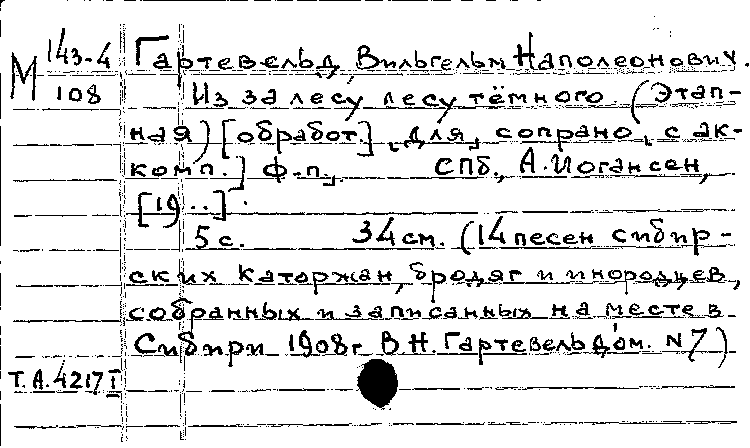 М 143-4
108
Гартевельд, Вильгельм Наполеонович.
Из за лесу лесу тёмного (Этап-
ная) [обработ.] „для„ сопрано, с ак-
комп.] ф-п„. СПб., А. Иогансен,
[19..].
5 с. 34 см. (14 песен сибир-
ских каторжан, бродяг и инородцев,
собранных и записанных на месте в
Сибири 1908 г В.Н. Гартевельдом. N 7)
Т.А.4217 I